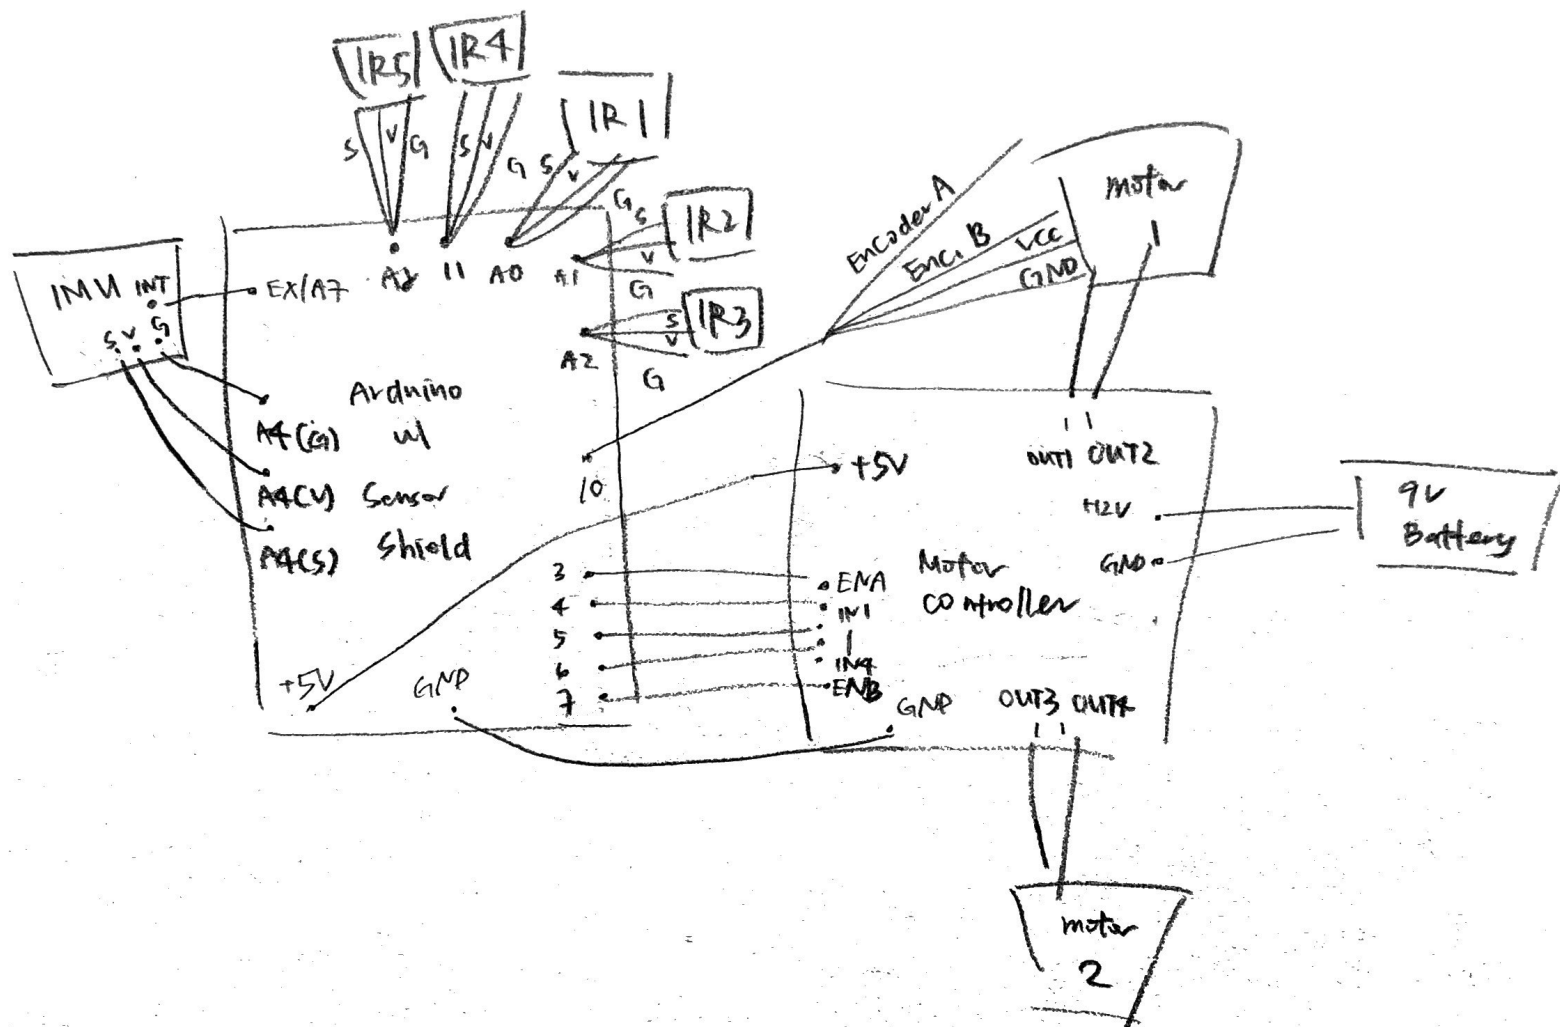 IR5
IR4
IR1
S V G
S V G
S V G
IR2
S
V
G
IR3
S
V
G
IMU INT
S V G
EX/A7
11
A0
A1
A2
Arduino
w/
Sensor
Shield
A4(G)
A4(V)
A4(S)
10
3
4
5
6
7
+5V
GND
Encoder A
Enc. B
VCC
GND
motor
1
+5V
OUT1 OUT2
+12V
GND
Motor
Controller
ENA
IN1
|
IN4
ENB
GND
OUT3 OUT4
9V
Battery
motor
2